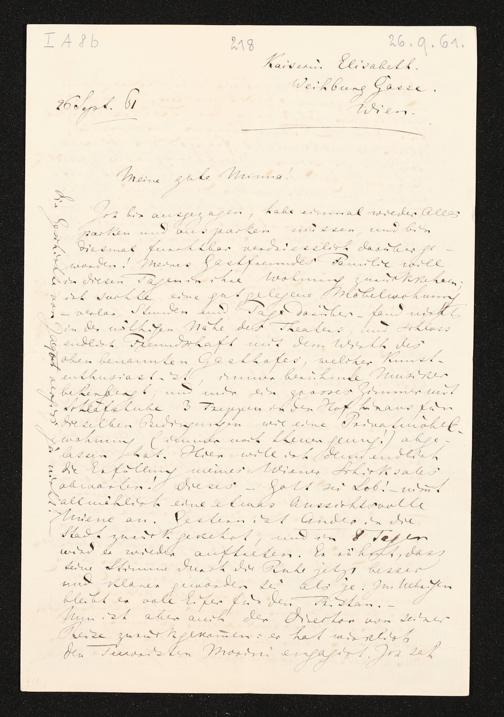 I A 8b
218
26.9.61.
Kaiserin Elisabeth.
Weihburg Gasse.
Wien.
26 Sept. 61
Meine gute Minna!
Ich bin ausgezogen, habe einmal wieder Alles
packen und auspacken müssen, und bin
diesmal furchtbar verdriesslich darüber ge-
worden! Meines Gastfreundes Familie will
in diesen Tagen in ihre Wohnung zurückkehren;
ich suchte eine gutgelegene Möbelwohnung
– verlor Stunden und Tage darüber – fand nichts
in der nöthigen Nähe des Theaters, und schloss
endlich Freundschaft mit dem Wirth des
oben benannten Gasthofes, welcher Kunst-
enthusiast ist, immer berühmte Musiker
beherbergt, und mir ein grosses Zimmer mit
Schlafstube 3 Treppen in den Hof hinaus für
dieselben Bedingungen wie eine Privatmöbel-
wohnung (immer noch theuer genug) abge-
lassen hat. Hier will ich denn endlich
die Erfüllung meines Wiener Schicksales
abwarten. Dieses – Gott sei Lob! – nimmt
allmählich eine etwas Aussichtsvolle
Miene an. Gestern ist Ander in die
Stadt zurückgekehrt, und in 8 Tagen
wird er wieder auftreten. Er rühmt, dass
seine Stimme durch die Ruhe jetzt besser
und klarer geworden sei als je: im Uebrigen
bleibt er voll Eifer für den Tristan. –
Nun ist aber auch der Director von seiner
Reise zurückgekommen: er hat wirklich
den Tenoristen Morini engagirt. Ich seh
die Geschichte von